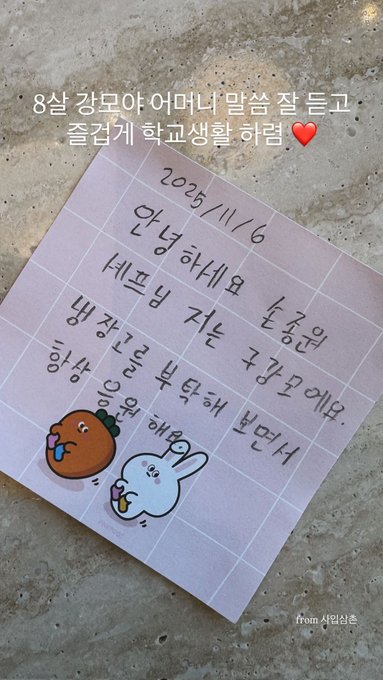 8살 강모야 어머니 말씀 잘 듣고
즐겁게 학교생활 하렴 ❤️
2025/11/6
안녕하세요 손종원
셰프님 저는 구강모에요.
냉장고를 부탁해 보면서
항상 응원해요
from 사입삼촌